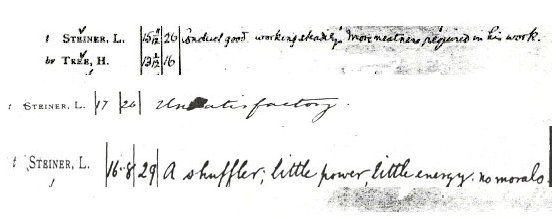 t STEINER, L. 15 11/12 26 Conduct good working steadily More neatness required in his work.
by TREE, H. 13 1/12 16
t STEINER, L. 17 26 Unsatisfactory.
t STEINER, L. 16.8 29 A shuffler; little power, little energy. no morals.